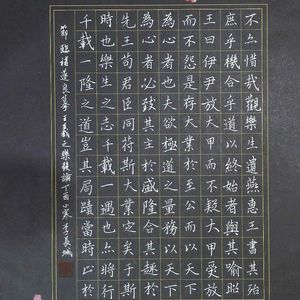 不亦惜哉觀樂生遺燕惠王書其殆
庶乎機合乎道以終始者與其喻昭
王曰伊尹放大甲而不疑大甲受放
而不怨是存大業於至公而以天下
為心者也夫欲極道之量務以天下
為心者必致其主於盛隆合其趣於
先王苟君臣同符斯大業定矣於斯
時也樂生之志千載一遇也亦將行
千載一隆之道豈其局蹟當時止於
節臨褚遂良摹王羲之樂毅論丁酉小寒李長城